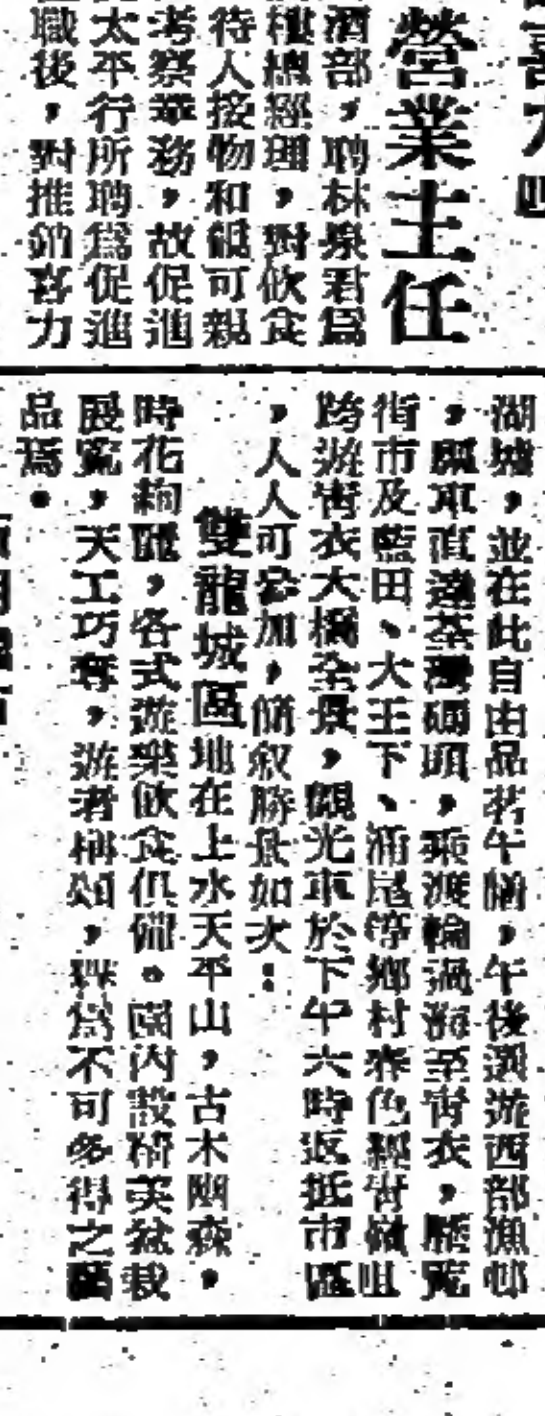 喜力
營業主任
酒部，聘林泉君爲
樓總經理，對飲食
待人接物和藹可親
考察業務，故促進
太平行所聘爲促進
職後，對推銷喜力
湖城，並在此自由品茗午膳，午後選遊西部漁邨
，驅車直達荃灣碼頭，乘渡輪過海至青衣，歷覽
街市及藍田、大王下、涌尾等鄉村春色經青嶺咀
跨遊青衣大橋全景，觀光車於下午六時返抵市區
，人人可參加，簡叙勝景如次：
雙龍城區地在上水天平山，古木幽森，
時花絢麗，各式遊樂飲食俱備。園內設精英盆栽
展覽，天工巧奪，游者稱頌，譽爲不可多得之
品焉。